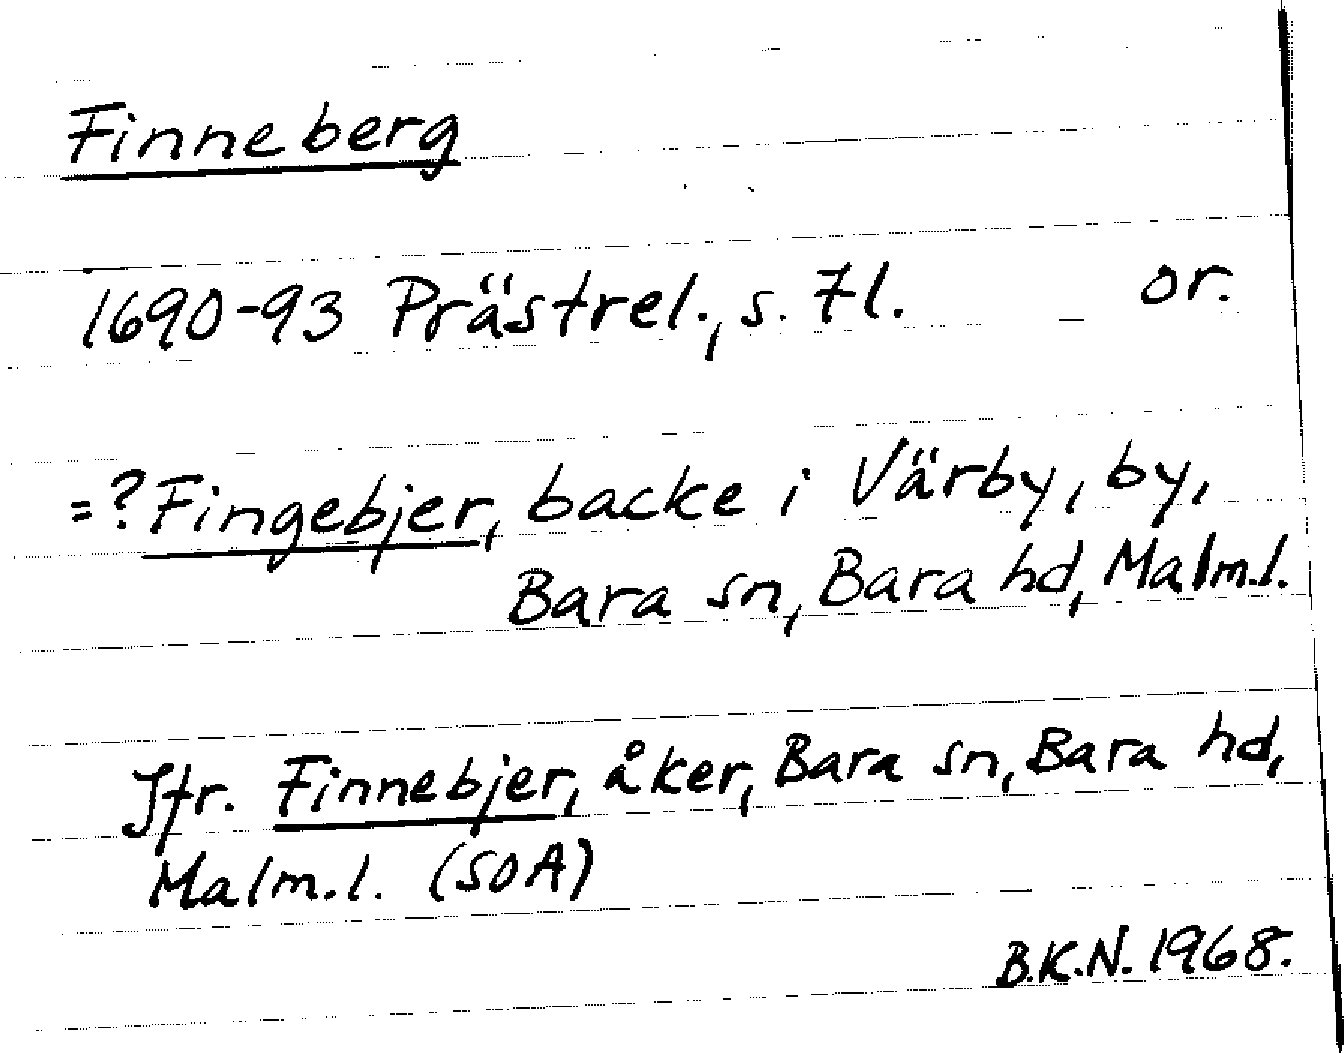 Finneberg
1690-93 Prästrel., s. 71. or.
=? Fingebjer, backe i Värby, by,
Bara sn, Bara hd, Malm.l.
Jfr. Finnebjer, åker, Bara sn, Bara hd,
Malm.l. (SOA)
B.K.N. 1968.